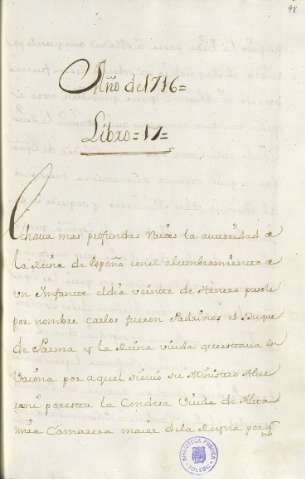 98
Año de 1716=
Libro = 17 =
Echava mas profundas Raices la autoridad de
la Reina de España con el alumbramiento de
un Infante el dia veinte de Henero puesle
por nombre carlos fueron Padrinos el Duque
de Parma y la Reina viuda que estava en
Vaiona por aquel sirvio su Ministro Albe
roni por esta la Condesa Viuda de Alta
mira Camarera maior de la Reyna
BIBLIOTECA PUBLICA
TOLEDO